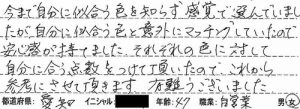 今まで自分に似合う色を知らず感覚で選んでいまし
たが自分に似合う色と意外にマッチングしていたので
安心感が持てました。それぞれの色に対して
自分に合う点数をつけて頂いたので、これから
参考にさせて頂きます 有難うございました
都道府県: 愛知 イニシャル: 年齢: 47 職業: 自営業 男